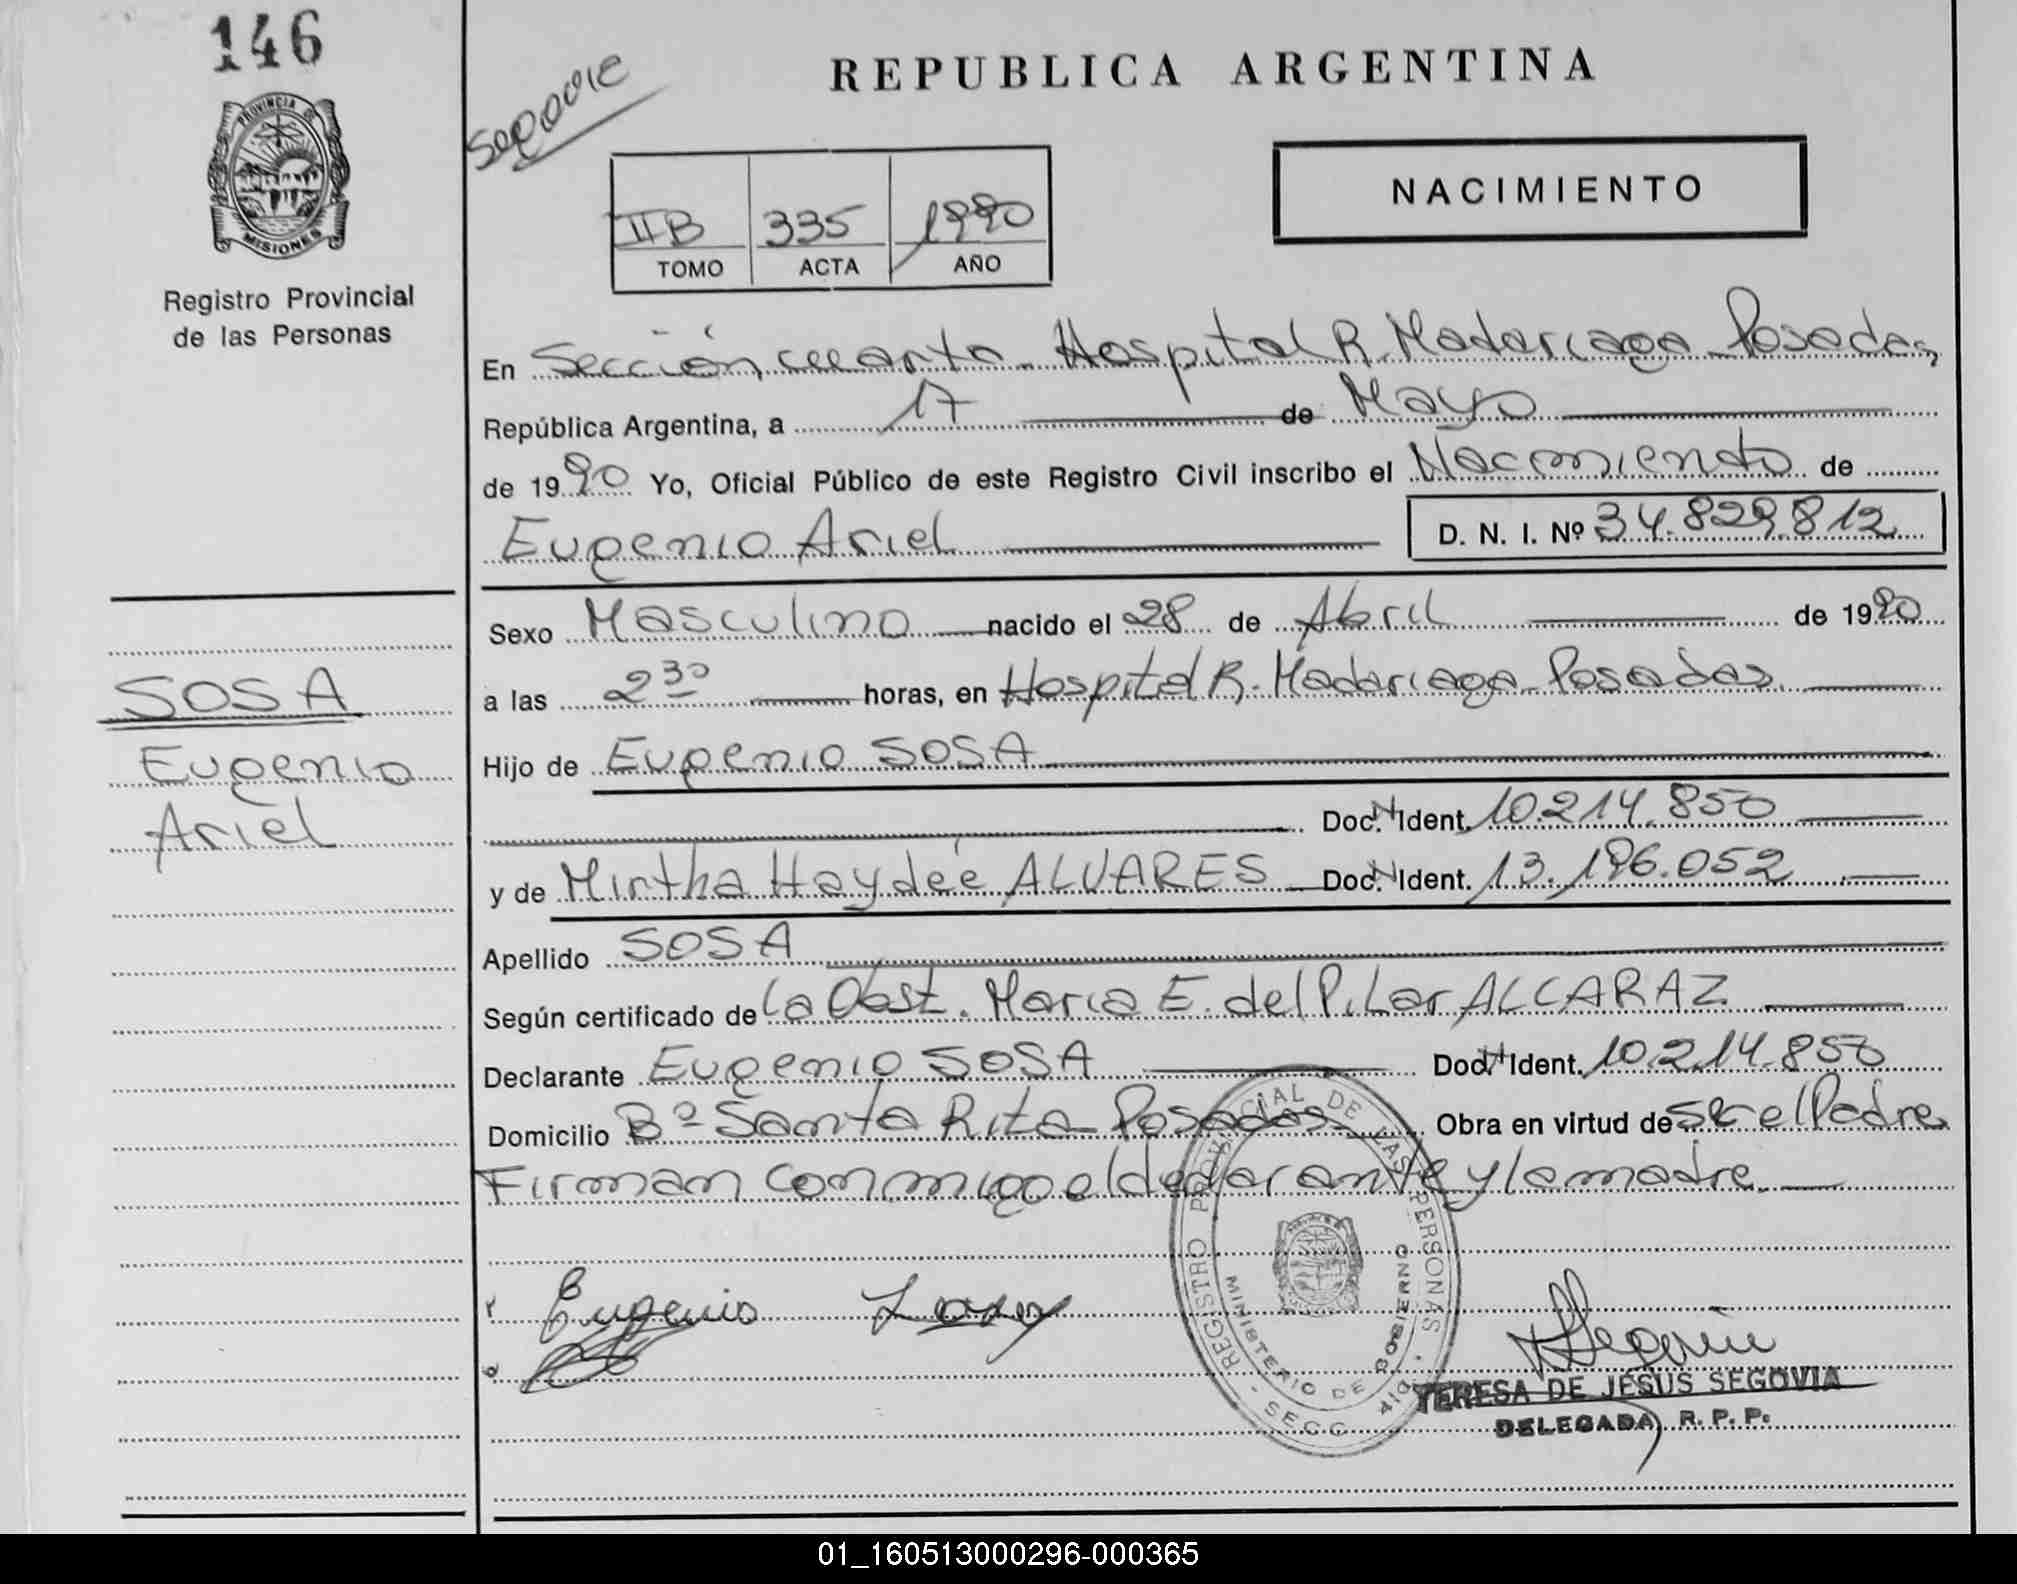 146
Segovie
REPUBLICA ARGENTINA
PROVINCIA DE MISIONES
Registro Provincial
de las Personas
NACIMIENTO
IIB 335 1990
TOMO ACTA AÑO
En Sección cuarta - Hospital R. Madariaga Posadas,
República Argentina, a 17 de Mayo
de 1990 Yo, Oficial Público de este Registro Civil inscribo el Nacimiento de
Eugenio Ariel D. N. I. Nº 34.829.812
Sexo Masculino nacido el 28 de Abril de 1990
a las 2 30 horas, en Hospital R. Madariaga - Posadas.
Hijo de Eugenio SOSA
Doc. N Ident. 10.214.850
y de Mirtha Haydée ALVARES Doc. N Ident. 13.196.052
Apellido SOSA
Según certificado de la Obst. María E. del Pilar ALCARAZ
Declarante Eugenio SOSA Doc. N Ident. 10.214.850
Domicilio Bº Santa Rita - Posadas - Obra en virtud de ser el Padre
Firman conmigo el declarante y la madre.
SOSA
Eugenio
Ariel
Eugenio
REGISTRO PROVINCIAL DE LAS PERSONAS
MINISTERIO DE GOBIERNO
SECC. 4
TERESA DE JESUS SEGOVIA
DELEGADA R. P. P.
01_160513000296-000365